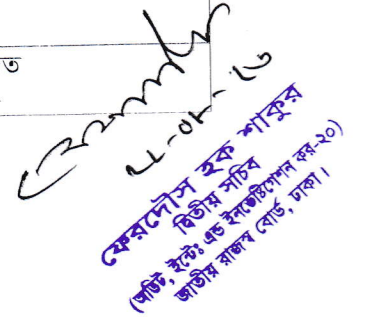 ৩
ফেরদৌস হক শাকুর
দ্বিতীয় সচিব
(অডিট, ইন্টেঃ এন্ড ইনভেষ্টিগেশন কর-২০)
জাতীয় রাজস্ব বোর্ড, ঢাকা।